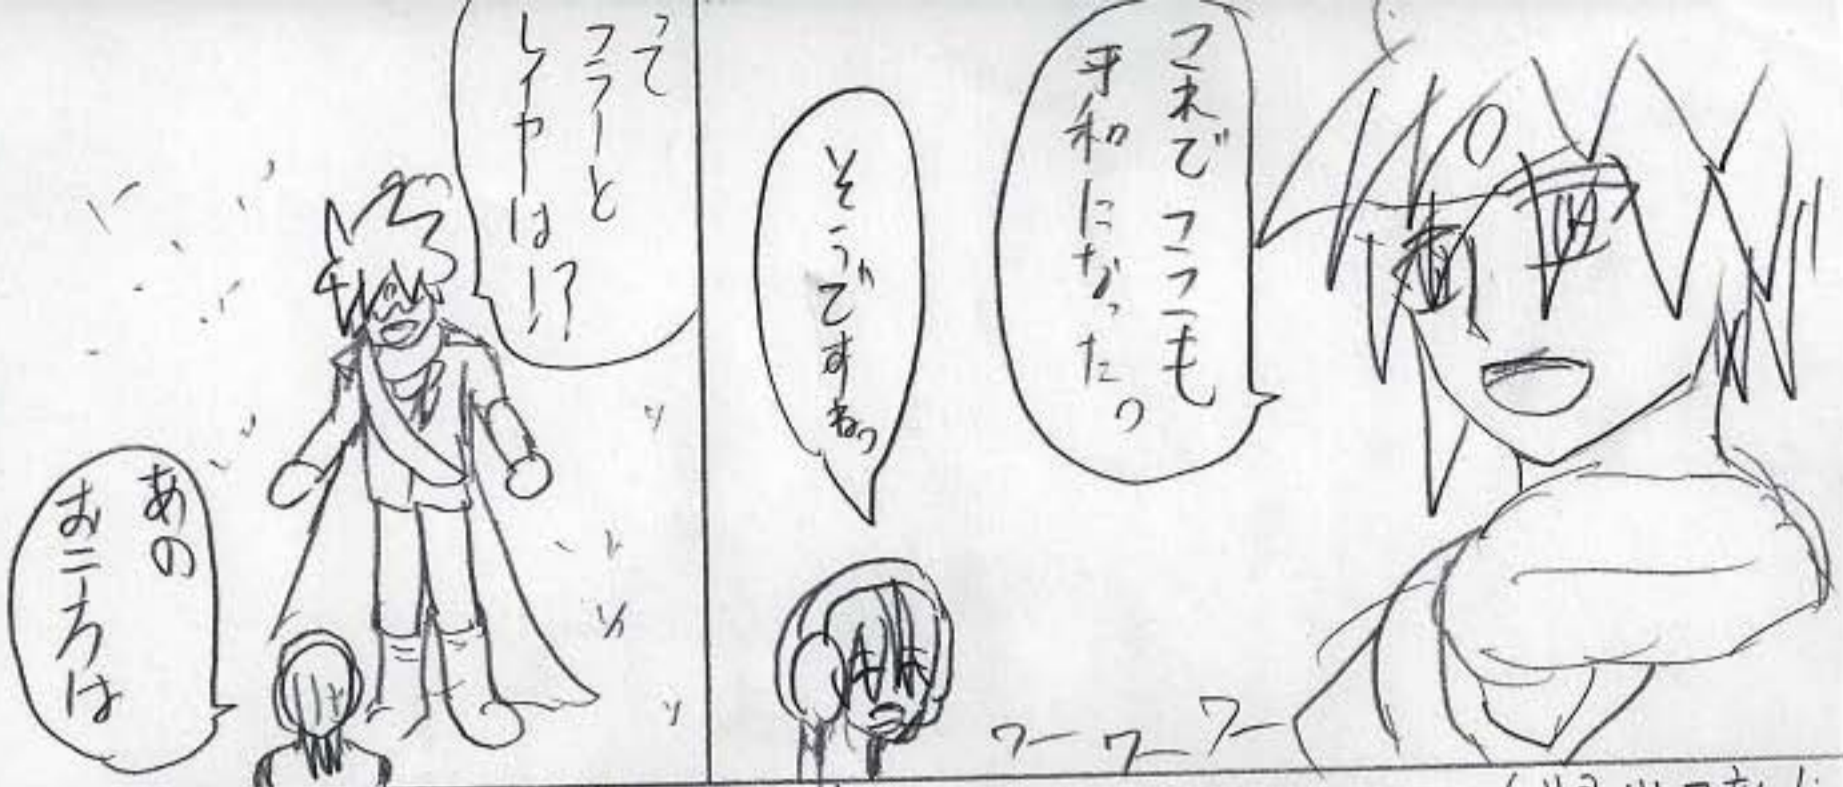 これでここも
平和になったっ
そうですねっ
ワー ワー ワー
って
フラーと
レイヤは!?
あの
お二方は